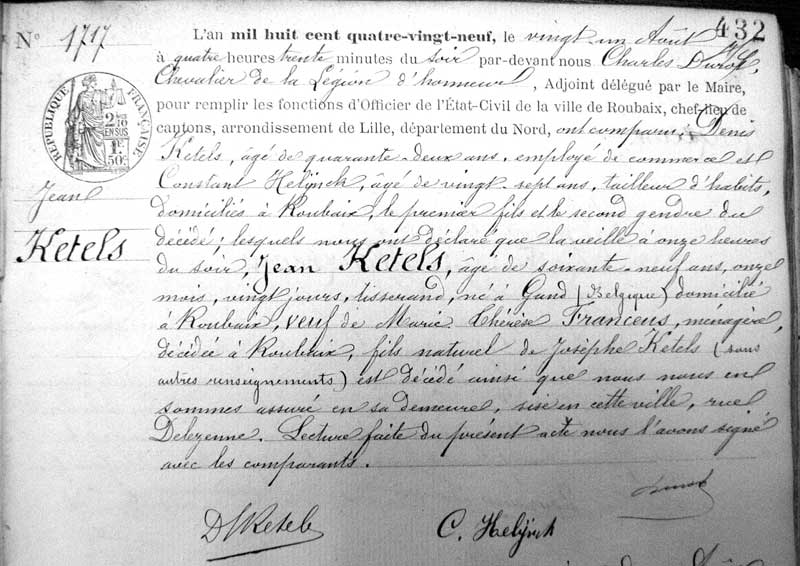 432
N° 1717
L'an mil huit cent quatre-vingt-neuf, le vingt-un Août
à quatre heures trente minutes du soir par-devant nous Charles
Chevalier de la Légion d'honneur, Adjoint délégué par le Maire,
pour remplir les fonctions d'Officier de l'État-Civil de la ville de Roubaix, chef-lieu de
cantons, arrondissement de Lille, département du Nord, ont comparu : Denis
Ketels, âgé de quarante-deux ans, employé de commerce et
Constant Helÿnck, âgé de vingt-sept ans, tailleur d'habits,
domiciliés à Roubaix, le premier fils et le second gendre du
décédé ; lesquels nous ont déclaré que la veille à onze heures
du soir, Jean Ketels, âgé de soixante-neuf ans, onze
mois, vingt jours, tisserand, né à Gand (Belgique) domicilié
à Roubaix, veuf de Marie Thérèse Francens, ménagère,
décédée à Roubaix, fils naturel de Josèphe Ketels (sans
autres renseignements) est décédé ainsi que nous nous en
sommes assuré en sa demeure, sise en cette ville, rue
Delezenne. Lecture faite du présent acte nous l'avons signé
avec les comparants.
RÉPUBLIQUE FRANÇAISE
2/10 EN SUS
1F 50c
Jean
Ketels
D Ketels
C. Helÿnck